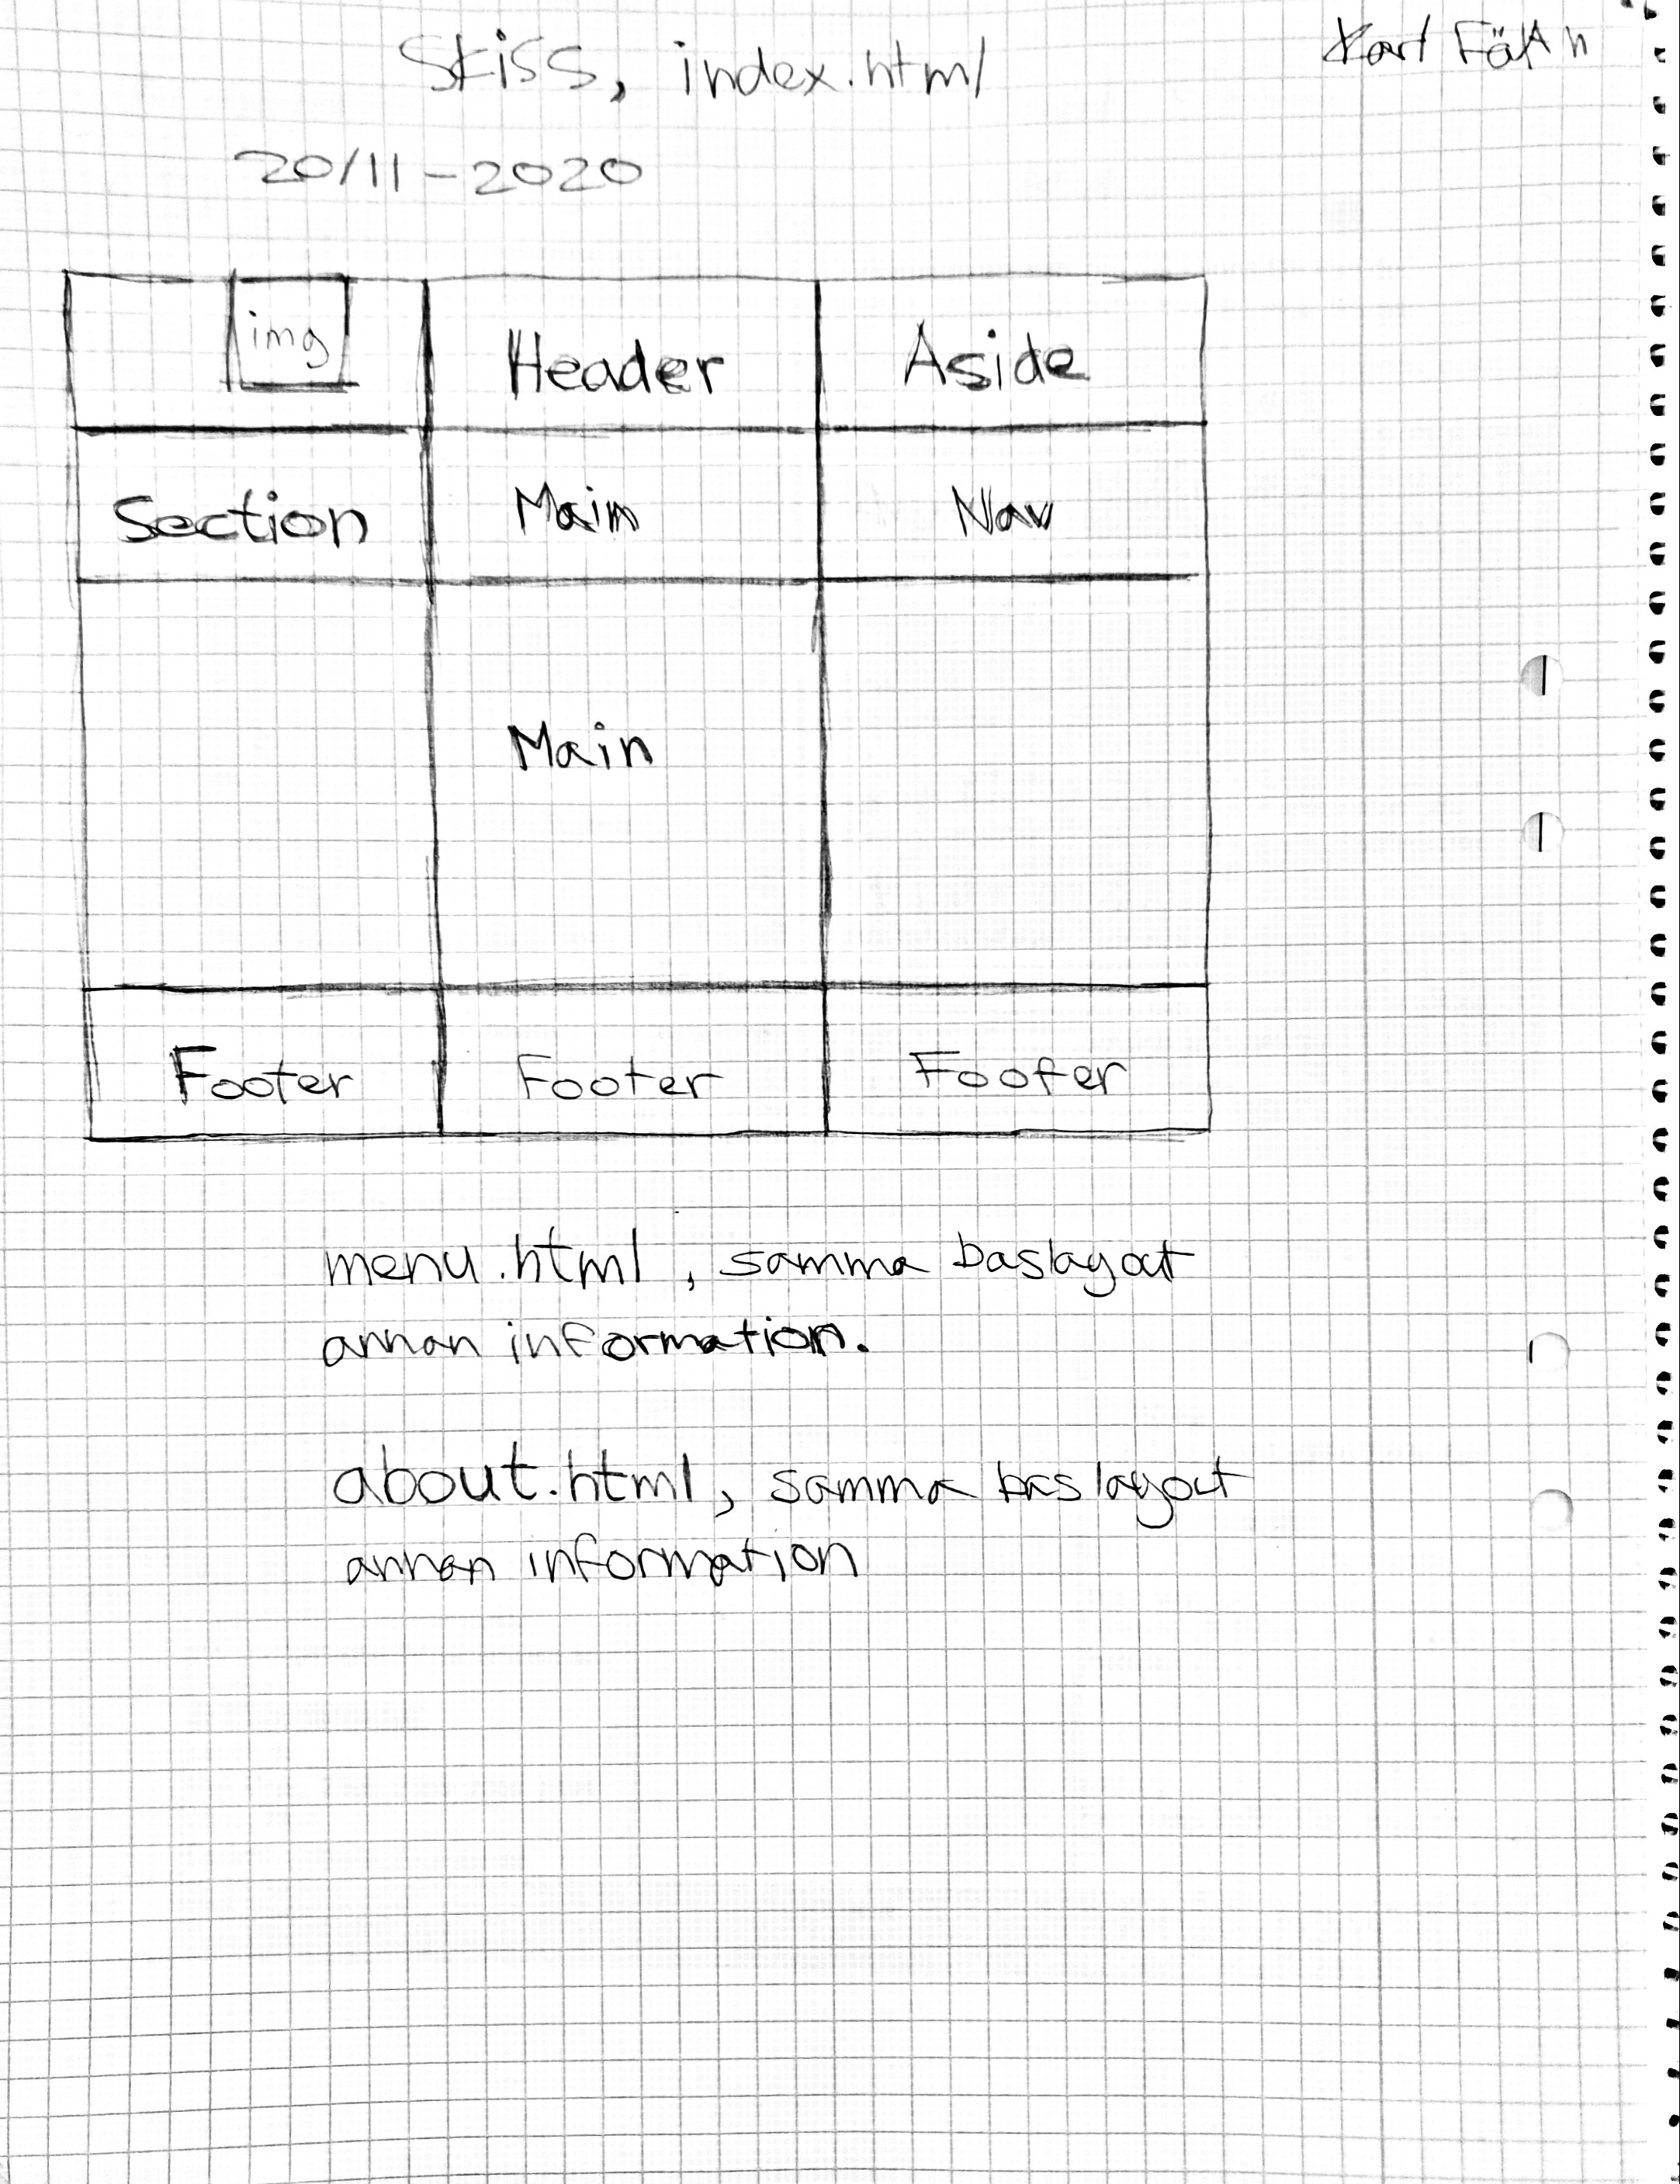 Skiss, index.html
Karl
20/11-2020
img
Header
Aside
Section
Main
Nav
Main
Footer
Footer
Footer
menu.html, samma baslayout
annan information.
about.html, samma baslayout
annan information